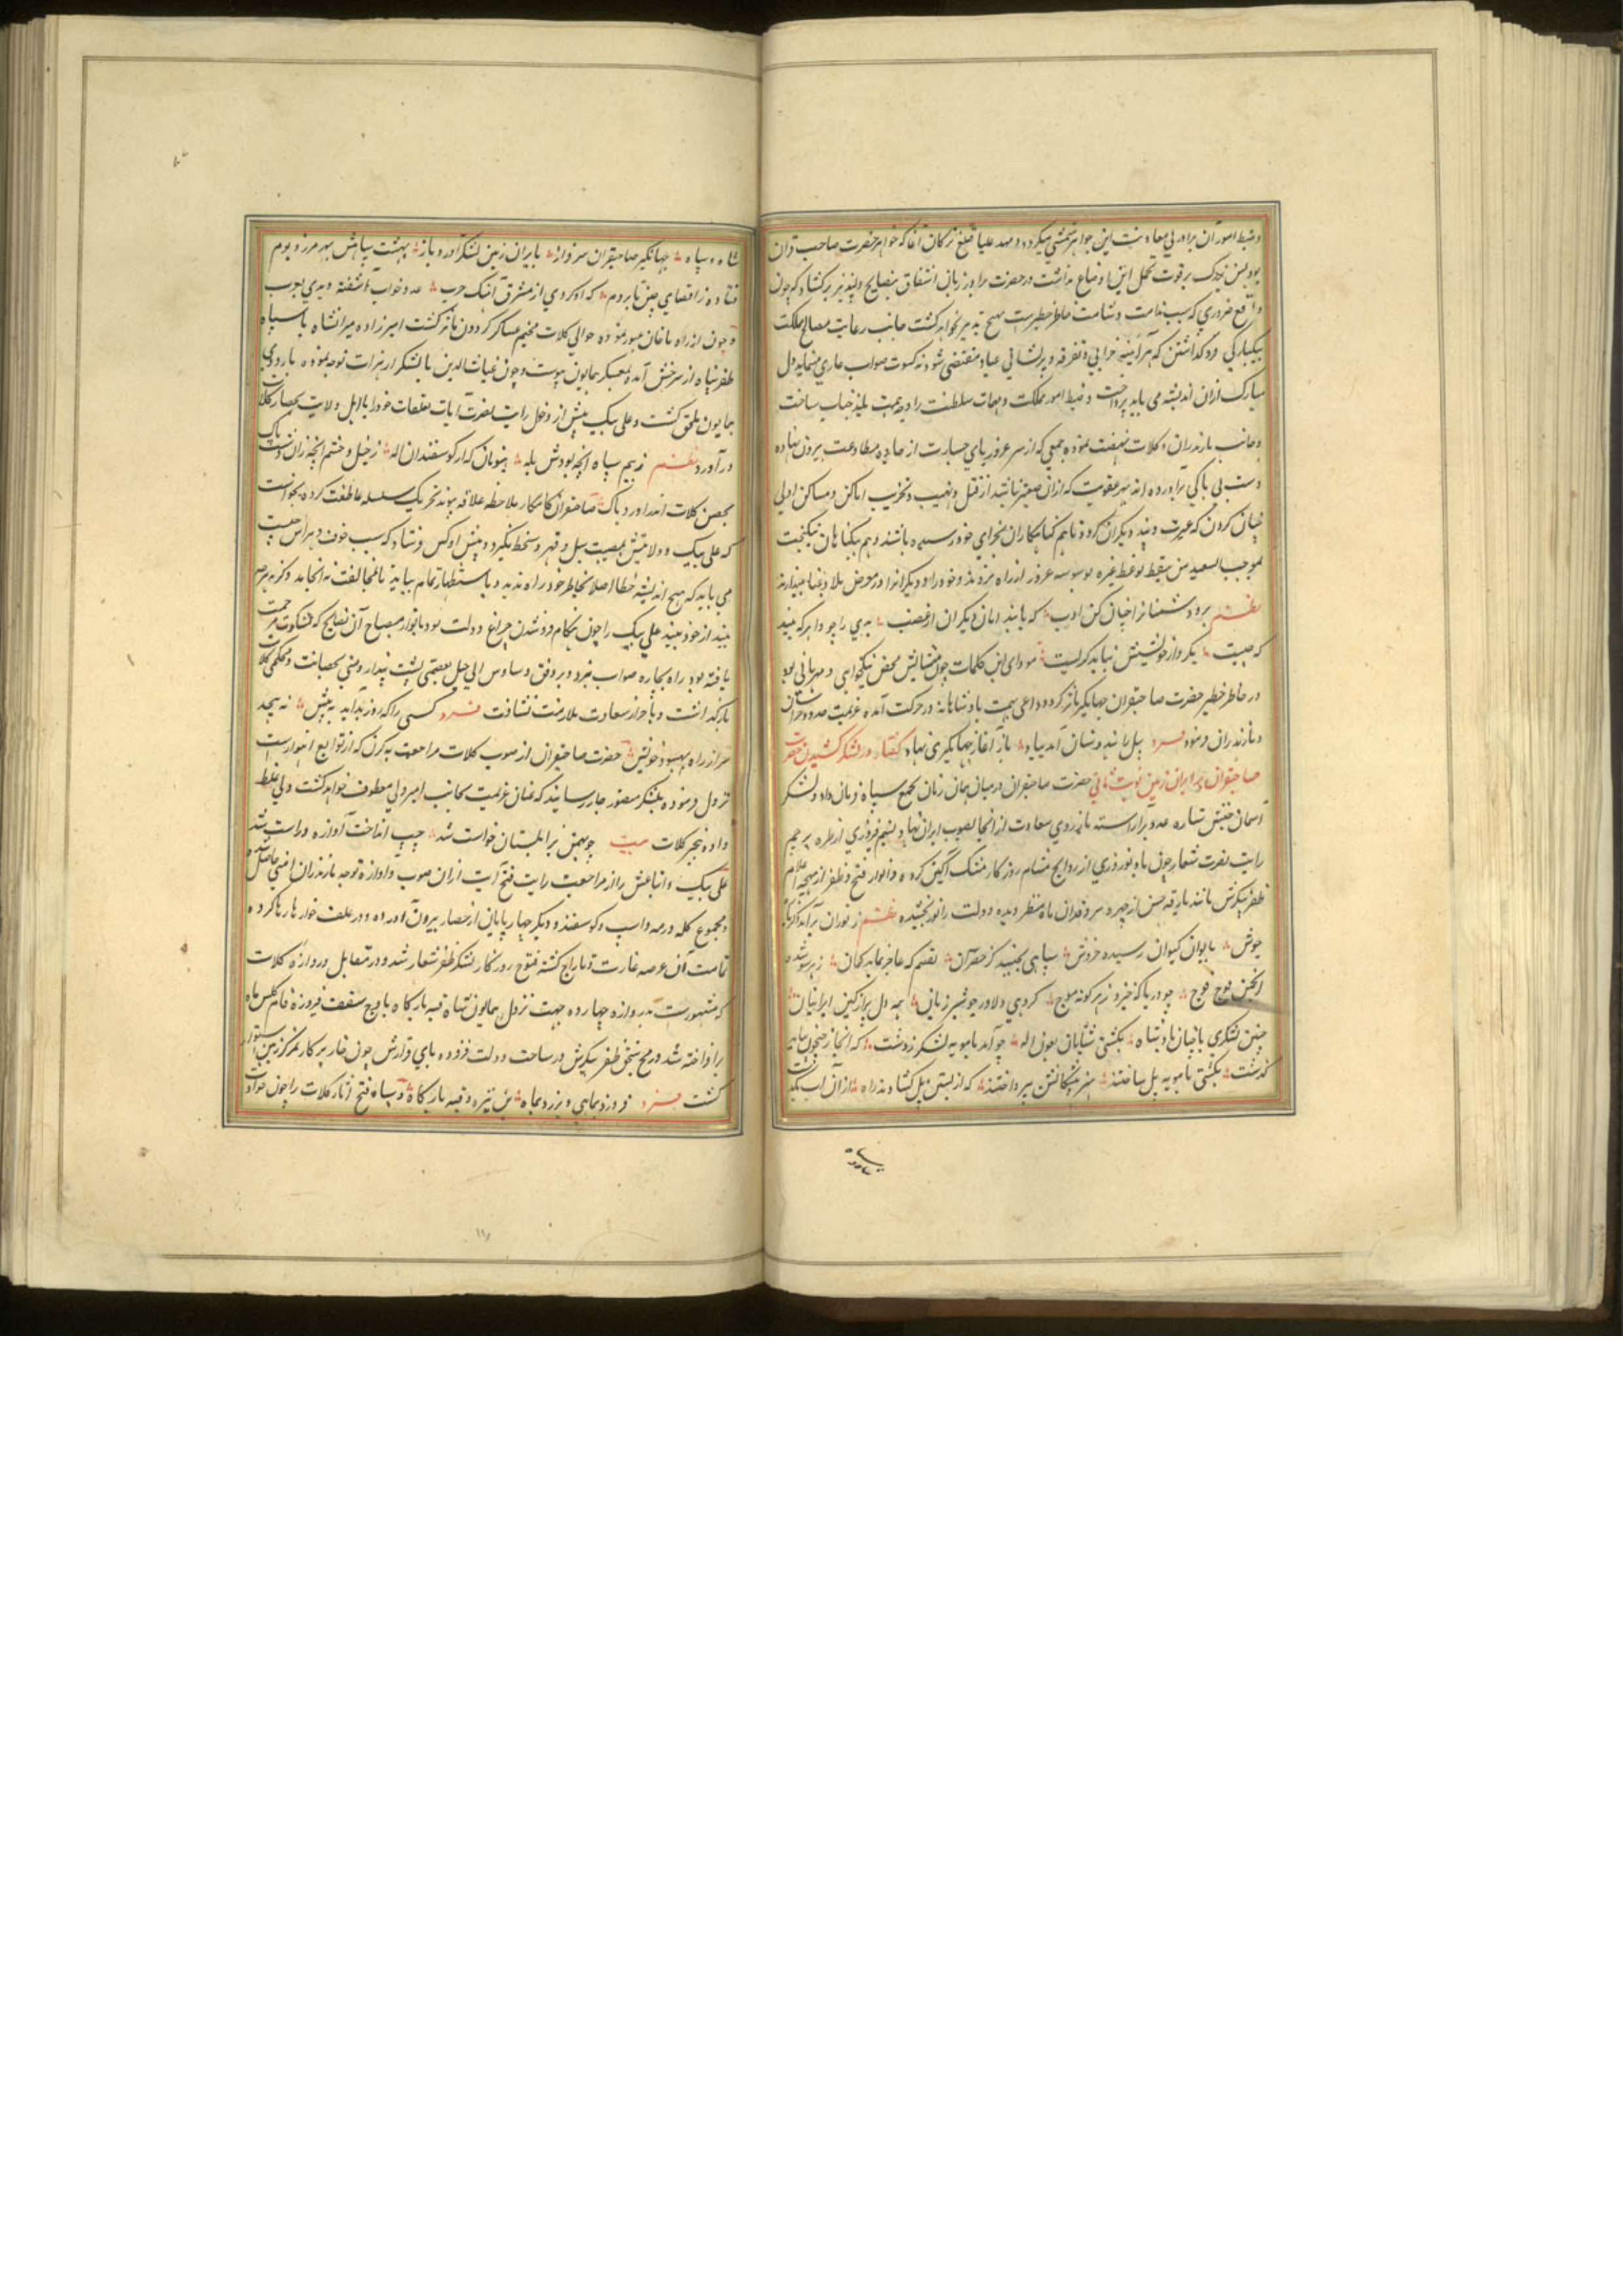 و ضبط امور آن برادر بی معاونت این جواهر تمشی میکرد و مهد علیا قتلغ ترکان آغا که خواهر حضرت صاحب قران
بود بس بزرک بر قوت تحمل این اوضاع نداشت در حضرت برادر زبان اشفاق بنصایح دلپذیر برکشاد که چون
واقع ضروری که سبب ندامت و شامت خاطر خطیرست هیچ تدبیر نخواهد کشت جانب رعایت مصالح مملکت
بیکبارکی فرو کذاشتن که هر آینه خرابی و تفرقه و پریشانی عباد مقتضی شود نه کسوت صواب عاری مینماید دل
مبارک ازان اندیشه می باید پرداخت و ضبط امور مملکت و مهمات سلطنت را وجه همت بلند جناب ساخت
و جانب مازندران و کلات نهضت نموده جمعی که از سر غرور پای جسارت از جاده مطاوعت بیرون نهاده
دست بی باکی برآورده اند بهر عقوبت که ازان صعبتر نباشد از قتل و نهب و تخریب اماکن و مساکن اولی
چنان کردن که عبرت و پند دیکران کردد تا هم کناهکاران بجزای خود رسیده باشند و هم بیکناهان نیکبخت
بموجب السعید من یتعظ بوعظ غیره بوسوسه غرور از راه نروند و خود را و دیکرانرا در معرض بلا و عنا نیندازند
نظم برو دشمنانرا چنان کن ادب که یابند امان دیکران از غضب بدی را چو داند که بیند
که چیست یکر داز خویشتن نباید کریست مودای این کلمات چون منشااش محض نیکخواهی و مهربانی بود
در خاطر خطیر حضرت صاحبقران جهانکیر تاثیر کرد و داعی همت پادشاهانه در حرکت آمده عزیمت صوب خراسان
و مازندران فرمود فرد پیل را هندوستان آمد بیاد باز آغاز جهانکیری نهاد کفتار در لشکر کشیدن حضرت
صاحبقران بر ایران زمین نوبت ثانی حضرت صاحبقران در میان همان زمان بجمع سپاه فرمان داد و لشکر
آسمان جنبش ستاره عدد بیاراسته از روی سعادت از انجا بصوب ایران نهاد و نسیم فیروزی از طره پرچم
رایت نصرت شعار چون باد نوروزی از روایح مشام روزکار مشک آکین کرده و انوار فتح و ظفر از مهجه اعلام
ظفر پیکرش مانند بارقه حسن از چهره سروقدان ماه منظر دیده دولت را نور بخشیده نظم ز توران برآمد دکرباره
جوش بایوان کیوان رسیده خروش سپاهی بجنبید کز حصر آن بفهم که عاجز بماند کمان ز هر سو شده
انجمن فوج فوج چو دریا که خیزد ز هر کونه موج کروهی دلاور چو شیر ژیان همه دل پر از کین ایرانیان
چنین لشکری با چنان پادشاه بکشتی شتابان بعون اله چو آمد بآمویه لشکر ز دشت که انجا ز جیحون بباید
کذشت بکشتی بآمویه پل ساختند هنر پیشکانش بپرداختند که از بستن پل کشادند راه از آن آب بکذشت
سپاه
شاه و سپاه جهانکیر صاحبقران سرفراز بایران زمین لشکر آورد باز بهشت سپاهش بهر مرز و بوم
فتاده ز اقصای چین تا بروم که او کردی از مشرق آهنک حرب عدو خواب آشفته دیدی بغرب
و چون از راه ماخان عبور نموده حوالی کلات مخیم عساکر کردون مآثر کشت امیر زاده میرانشاه با سپاه
ظفر پناه از سرخس آمده بمعسکر همایون پیوست و چون غیاث الدین با لشکر از هرات توجه نموده باردوی
همایون ملحق کشت و علی بیک پیش از دخول رایت نصرت آیات متعلقات خود را با اهل ولایت بحصار کلات
درآورد نظم ز بیم سپاه آنچه بودش یله بنوبان که از کوسفندان له ز خیل و حشم آنچه ز ان دست پاک
بحصن کلات اندر آورد پاک صاحبقران کامکار ملاحظه علاقه پیوند تحریک سلسله عاطفت کرده نخواست
که علی بیک و ولایتش بمصیبت سیل و قهر و سخط بکیرد و پیش او کس فرستاد که سبب خوف و هراس چیست
می باید که هیچ اندیشه خطا اصلا بخاطر خود راه ندهد و باستظهار تمام بیاید تا مخالفت نه انجامد و کر نه هرچه
بیند از خود بیند علی بیک را چون هنکام فرو شدن چراغ دولت بود بانوار مصباح آن نصایح که مشکوة مرحمت
یافته بود راه بچاره صواب نبرد و بر وفق وساوس الی جبل یعصمنی پشت پندار و منی بحصانت و محکمی کلات
بازکذاشت و باحراز سعادت ملازمت نشتافت فرد کسی را که روز بد آید به پیش نه پیچد
سر از راه بهبود خویش حضرت صاحبقران از صوب کلات مراجعت به کرن که از توابع ابیوردست
نزول فرموده بلشکر منصور جار رسانید که عنان عزیمت بجانب امیر ولی معطوف خواهد کشت ولی غلط
داده بخبر کلات بیت چو بهمن بزابلستان خواست شد چپ انداخت آوازه و راست شد
علی بیک و اتباعش را از مراجعت رایت فتح آیت ازان صوب و آوازه توجه مازندران امنی حاصل شده
مجموع کله و رمه و اسب و کوسفند و دیکر چهارپایان از حصار بیرون آورده و در علف خوارها رها کرده
تمامت آن عرصه غارت و تاراج کشته فتوح روزکار لشکر ظفر شعار شد و در مقابل دروازه کلات
که مشهورست بدروازه چهارده جهت نزول همایون شاه قبه بارکاه باوج سقف فیروزه فام کلس ماه
برافراخته شد و رمح سنجق ظفر پیکرش در ساحت دولت فزوده پای قرارش چون خار پرکار بمرکز زمین استوار
کشت فرد فرو زد بماهی و بر زد بماه بن نیزه و قبه بارکاه و سپاه فتح آثار کلات را چون حوادث
۱۱۸